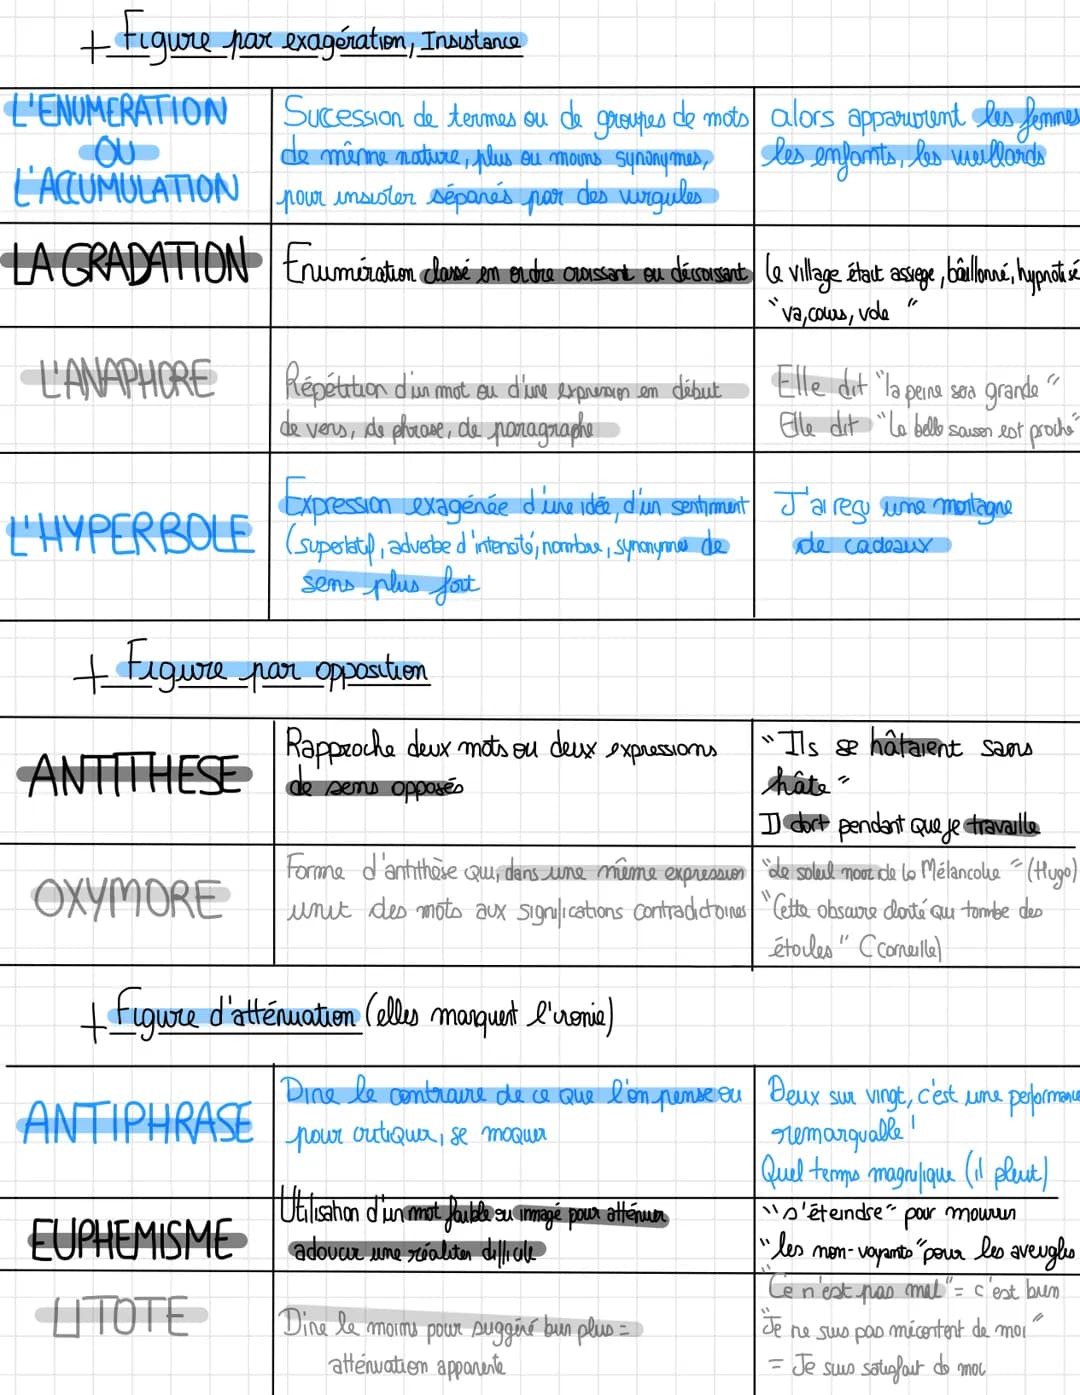 + Figure par exagération, Insistance
L'ENUMERATION
OU
L'ACCUMULATION
Succession de termes ou de groupes de mots
de même nature, plus ou moins synonymes,
pour insister séparés par des virgules
alors apparurent les femmes
les enfants, les vieillards
LA GRADATION
Enumération classé en ordre croissant ou décroissant
Le village était assiege, bâillonné, hypnotisé
"va, cours, vole "
L'ANAPHORE
Répétition d'un mot ou d'une expression en début
de vers, de phrase, de paragraphe
Elle dit "la peine sera grande"
Elle dit "La belle saison est proche"
L'HYPERBOLE
Expression exagérée d'une idée, d'un sentiment
(superlatif, adverbe d'intensité, nombre, synonyme de
sens plus fort
J'ai reçu une montagne
de cadeaux
+ Figure par opposition
ANTITHESE
Rapproche deux mots ou deux expressions
de sens opposés
"Ils se hâtaient sans
hâte"
Il dort pendant que je travaille
OXYMORE
Forme d'antithèse qui, dans une même expression
unit des mots aux significations contradictoires
"de soleil noir de la Mélancolie" (Hugo)
"Cette obscure clarté qui tombe des
étoiles" (Corneille)
+ Figure d'atténuation (elles marquent l'ironie)
ANTIPHRASE
Dire le contraire de ce que l'on pense ou
pour critiquer, se moquer
Deux sur vingt, c'est une peformance
remarquable !
Quel temps magnifique (il pleut)
EUPHEMISME
Utilisation d'un mot faible ou imagé pour atténuer
adoucir une réaliter difficile
"s'éteindre" pour mourir
"les non-voyants "pour les aveugles
LITOTE
Dire le moins pour suggéré bien plus =
atténuation apparente
"Ce n'est pas mal" = c'est bien
"Je ne suis pas mécontent de moi"
= Je suis satisfait de moi